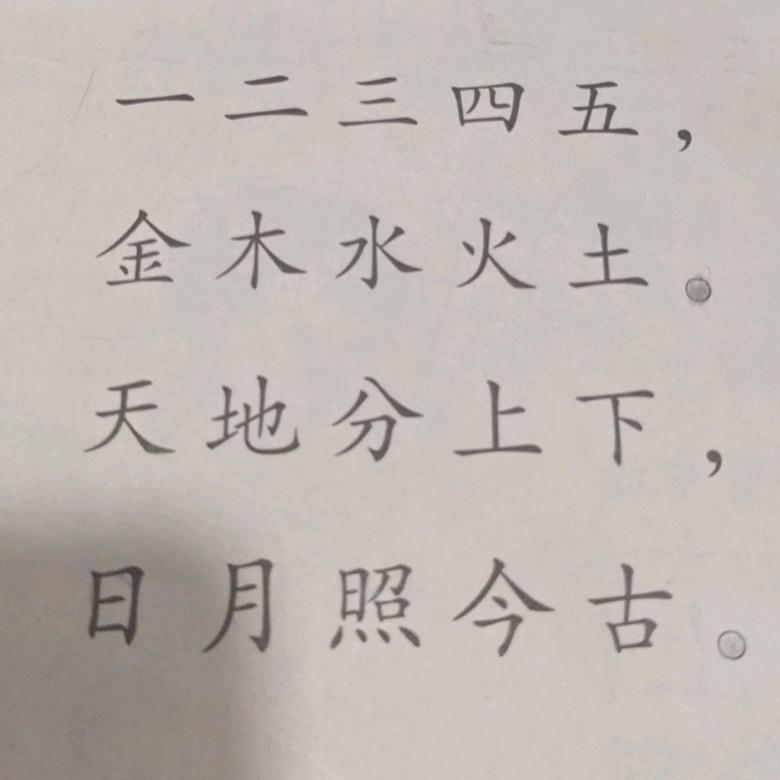 一二三四五，
金木水火土。
天地分上下，
日月照今古。